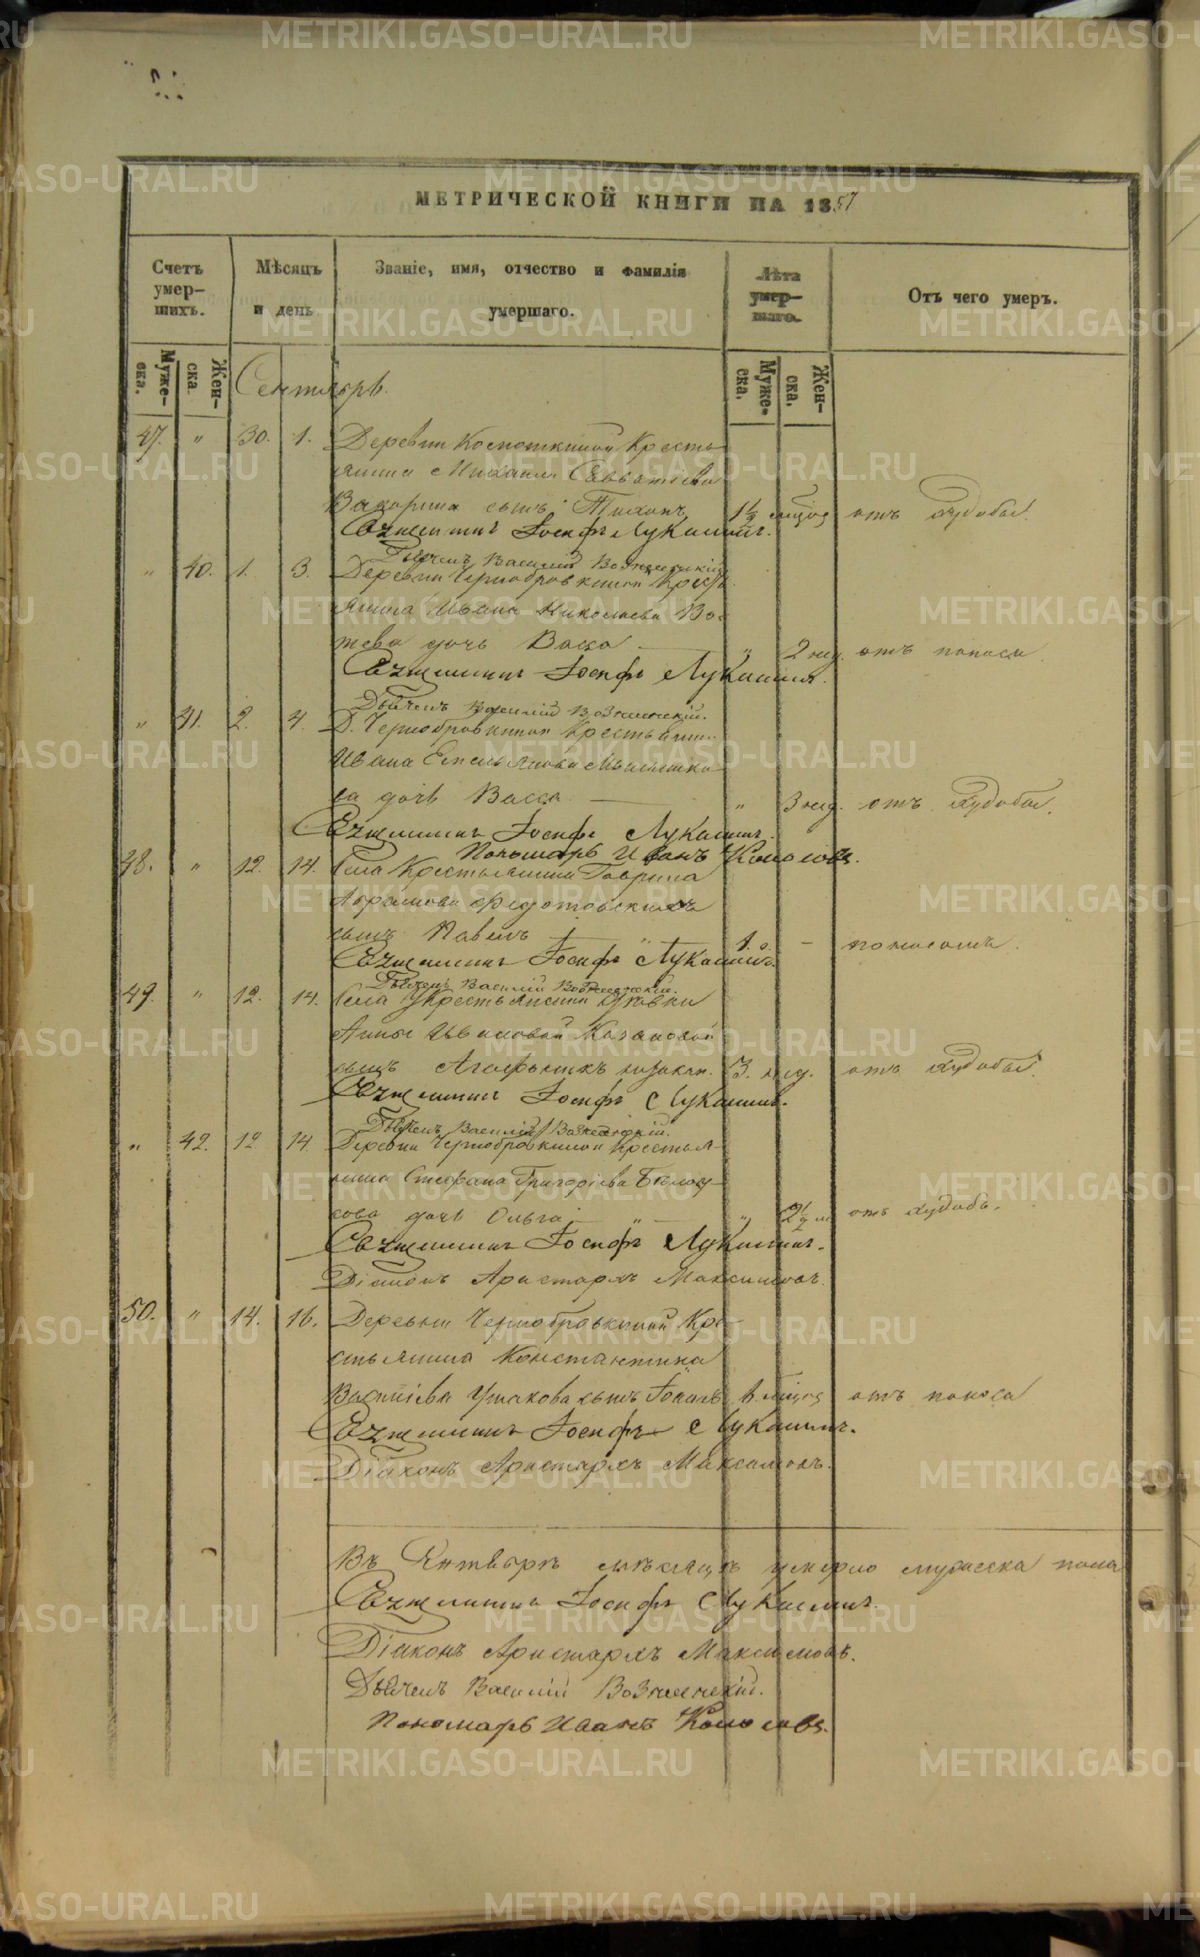 МЕТРИЧЕСКОЙ КНИГИ НА 1857
Счетъ умер-
шихъ.
Мѣсяцъ
и день
Званіе, имя, отчество и фамилія
умершаго.
Лѣта
умер-
шаго.
Отъ чего умеръ.
Муже-
ска.
Жен-
ска
Муже-
ска.
Жен-
ска.
Сентябрь.
47. " 30. 1. Деревни Крестья
нина Михаила Савватіева
сынъ Тихонъ 1½ мѣсяц отъ худобы.
Священникъ Іосифъ Лукашинъ.
Дьячекъ Василій Вознесенскій
" 40. 1. 3. Деревни Чернобровкиной Кресть
янина Ивана Николаева Во-
дочь Васса " 2 нед. отъ поноса
Священникъ Іосифъ Лукашинъ.
Дьячекъ Василій Вознесенскій.
" 41. 2. 4. Д. Чернобровкиной Крестьянина
Ивана Емельянова
ва дочь Васса " 3 нед. отъ худобы.
Священникъ Іосифъ Лукашинъ.
Пономарь Иванъ
48. " 12. 14. Села Крестьянина Гаврила
Абрамова Федотовскихъ
сынъ Павелъ " 1. г. поносомъ.
Священникъ Іосифъ Лукашинъ.
Дьячекъ Василій Вознесенскій.
49. " 12. 14. Села Крестьянской дѣвки
Анны Ивановой
сынъ Агафоникъ незакон. 3. нед. отъ худобы.
Священникъ Іосифъ Лукашинъ.
Дьячекъ Василій Вознесенскій.
" 42. 12 14. Деревни Чернобровкиной Крестья
нина Стефана Григоріева Бѣлоу
сова дочь Ольга " " 2½ м отъ худобы.
Священникъ Іосифъ Лукашинъ.
Діаконъ Аристархъ Максимовъ.
50. " 14. 16. Деревни Чернобровкиной Кре-
стьянина Константина
Ушакова сынъ 1. мѣсяц отъ поноса
Священникъ Іосифъ Лукашинъ.
Діаконъ Аристархъ Максимовъ.
Въ мѣсяцѣ умерло мужеска пола
Священникъ Іосифъ Лукашинъ.
Діаконъ Аристархъ Максимовъ.
Дьячекъ Василій Вознесенскій.
Пономарь Иванъ
METRIKI.GASO-URAL.RU